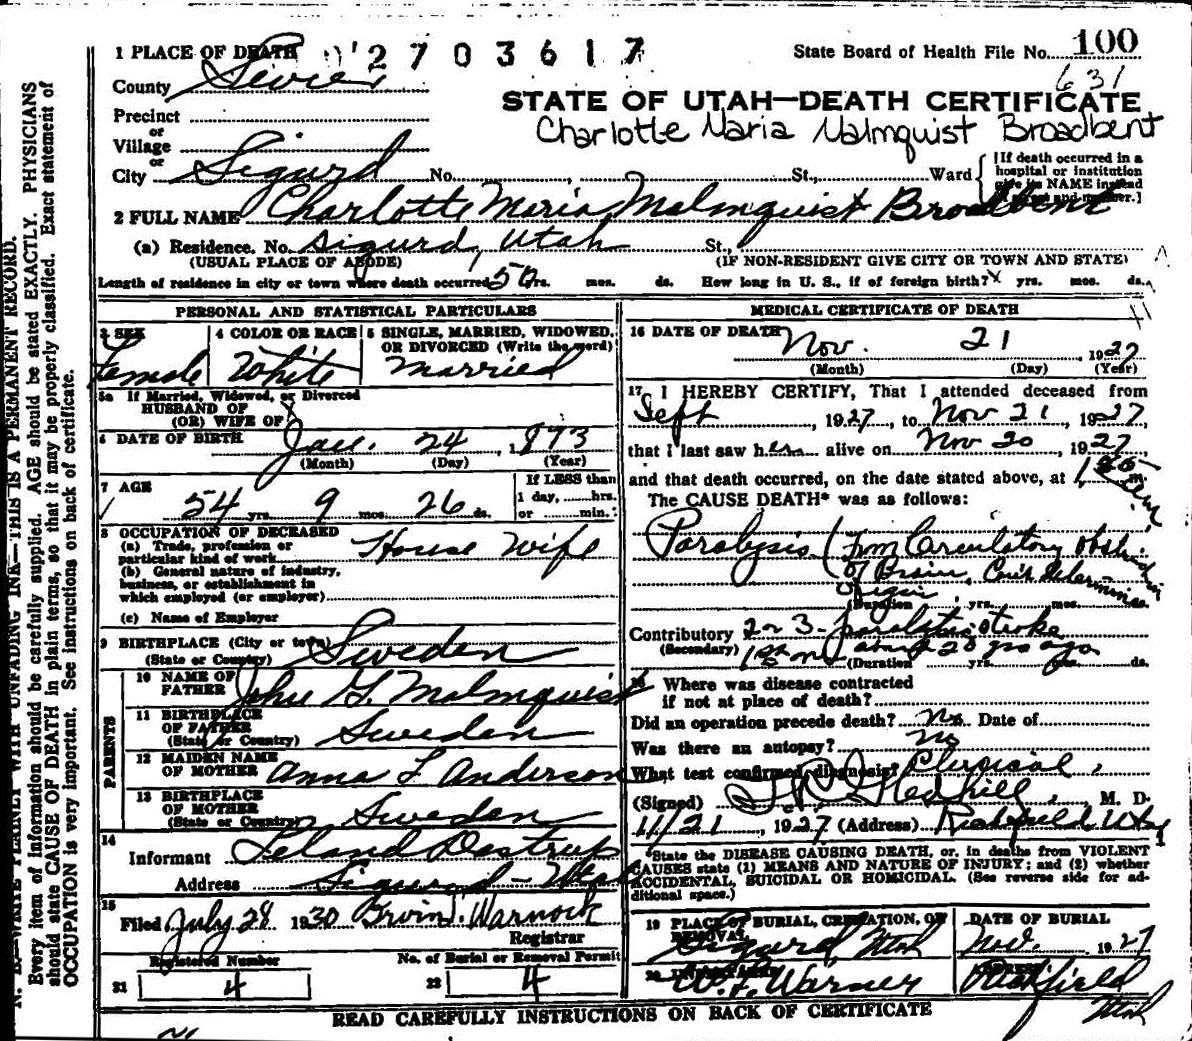 1 PLACE OF DEATH 2703617 State Board of Health File No. 100
County Sevier 631
STATE OF UTAH—DEATH CERTIFICATE
Precinct Charlotte Maria Malmquist Broadbent
or
Village
or
City Sigurd No. , St., Ward
[If death occurred in a hospital or institution give its NAME instead of street and number.]
2 FULL NAME Charlotte Maria Malmquist Broadbent
(a) Residence. No. Sigurd, Utah St.
(USUAL PLACE OF ABODE) (IF NON-RESIDENT GIVE CITY OR TOWN AND STATE)
Length of residence in city or town where death occurred 50 yrs. mos. ds. How long in U. S., if of foreign birth? x yrs. mos. ds.
PERSONAL AND STATISTICAL PARTICULARS
3 SEX 4 COLOR OR RACE 5 SINGLE, MARRIED, WIDOWED, OR DIVORCED (Write the word)
Female White Married
5a If Married, Widowed, or Divorced
HUSBAND OF
(OR) WIFE OF
6 DATE OF BIRTH Jan. 24, 1873
(Month) (Day) (Year)
7 AGE If LESS than
54 yrs. 9 mos. 26 ds. 1 day, hrs.
or min.
8 OCCUPATION OF DECEASED
(a) Trade, profession or
particular kind of work House Wife
(b) General nature of industry,
business, or establishment in
which employed (or employer)
(c) Name of Employer
9 BIRTHPLACE (City or town)
(State or Country) Sweden
PARENTS
10 NAME OF
FATHER John G. Malmquist
11 BIRTHPLACE
OF FATHER
(State or Country) Sweden
12 MAIDEN NAME
OF MOTHER Anna L Anderson
13 BIRTHPLACE
OF MOTHER
(State or Country) Sweden
14
Informant Leland Dastrup
Address Sigurd - Utah
15
Filed July 28 1930 Ervin J. Warnock
Registrar
Registered Number No. of Burial or Removal Permit
21 4 22 4
MEDICAL CERTIFICATE OF DEATH
16 DATE OF DEATH Nov. 21, 1927
(Month) (Day) (Year)
17 I HEREBY CERTIFY, That I attended deceased from
Sept, 1927, to Nov 21 1927
that I last saw her alive on Nov 20, 1927
and that death occurred, on the date stated above, at
The CAUSE DEATH* was as follows:
Paralysis (from Circulatory
of Brain,
(Duration yrs. mos.
Contributory 2 or 3 paralytic stroke
(Secondary) 1st about 20 yrs ago
(Duration yrs. mos. ds.
18 Where was disease contracted
if not at place of death?
Did an operation precede death? No. Date of
Was there an autopsy? no
What test confirmed diagnosis? Clinical,
(Signed) , M. D.
11/21, 1927 (Address) Richfield Utah
*State the DISEASE CAUSING DEATH, or, in deaths from VIOLENT
CAUSES state (1) MEANS AND NATURE OF INJURY; and (2) whether
ACCIDENTAL, SUICIDAL OR HOMICIDAL. (See reverse side for ad-
ditional space.)
19 PLACE OF BURIAL, CREMATION, OR REMOVAL DATE OF BURIAL
Sigurd Utah Nov. 1927
20 W. F. Warner Richfield
Utah
READ CAREFULLY INSTRUCTIONS ON BACK OF CERTIFICATE
N. B.—WRITE PLAINLY WITH UNFADING INK—THIS IS A PERMANENT RECORD.
Every item of information should be carefully supplied. AGE should be stated EXACTLY. PHYSICIANS
should state CAUSE OF DEATH in plain terms, so that it may be properly classified. Exact statement of
OCCUPATION is very important. See instructions on back of certificate.